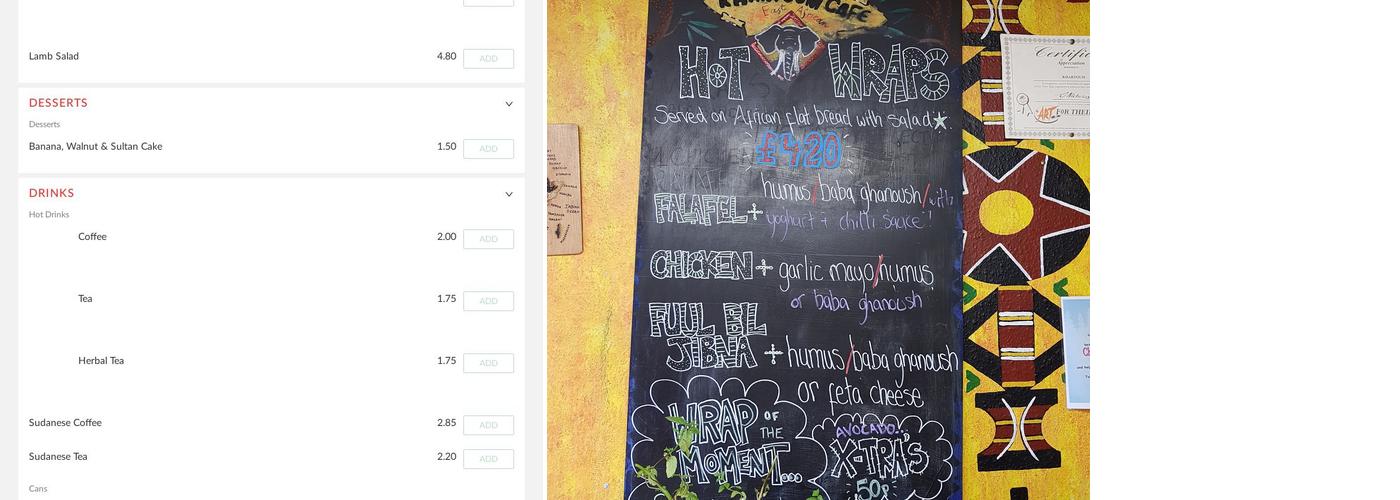 Lamb Salad 4.80 ADD
DESSERTS
Desserts
Banana, Walnut & Sultan Cake 1.50 ADD
DRINKS
Hot Drinks
Coffee 2.00 ADD
Tea 1.75 ADD
Herbal Tea 1.75 ADD
Sudanese Coffee 2.85 ADD
Sudanese Tea 2.20 ADD
Cans
CAFE
East African
HOT WRAPS
Served on African flat bread with salad
£4.20
FALAFEL + humus/baba ghanoush/with
yoghurt + chilli sauce!
CHICKEN + garlic mayo/humus
or baba ghanoush
FUUL BIL
JIBNA + humus/baba ghanoush
or feta cheese
WRAP OF
THE
MOMENT...
AVOCADO...
X-TRA'S
50p
Certific
Appreciation
ART FOR THEI